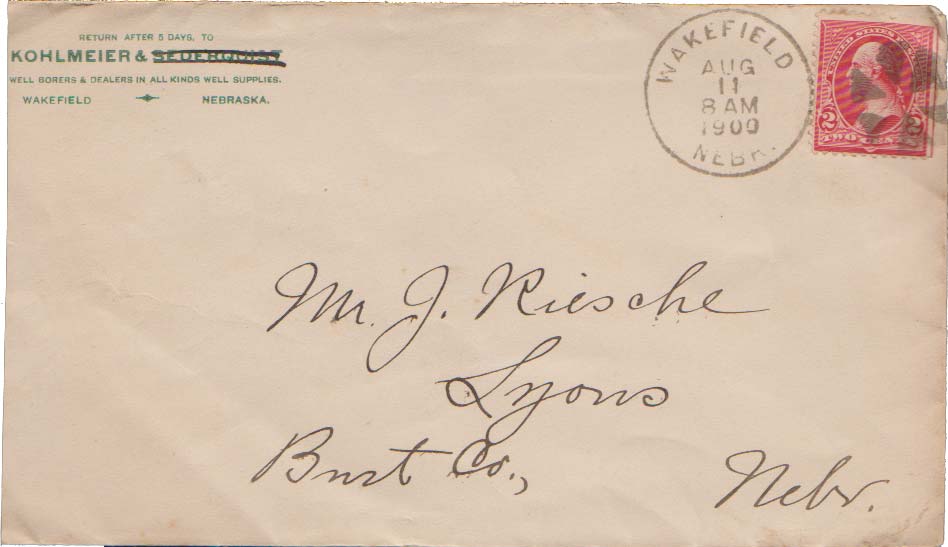 RETURN AFTER 5 DAYS, TO
KOHLMEIER & SEDERQUIST
WELL BORERS & DEALERS IN ALL KINDS WELL SUPPLIES.
WAKEFIELD NEBRASKA.
WAKEFIELD
AUG
11
8 AM
1900
NEBR.
UNITED STATES
2 2
TWO CENTS
Mr. J. Riesche
Lyons
Burt Co.,
Nebr.